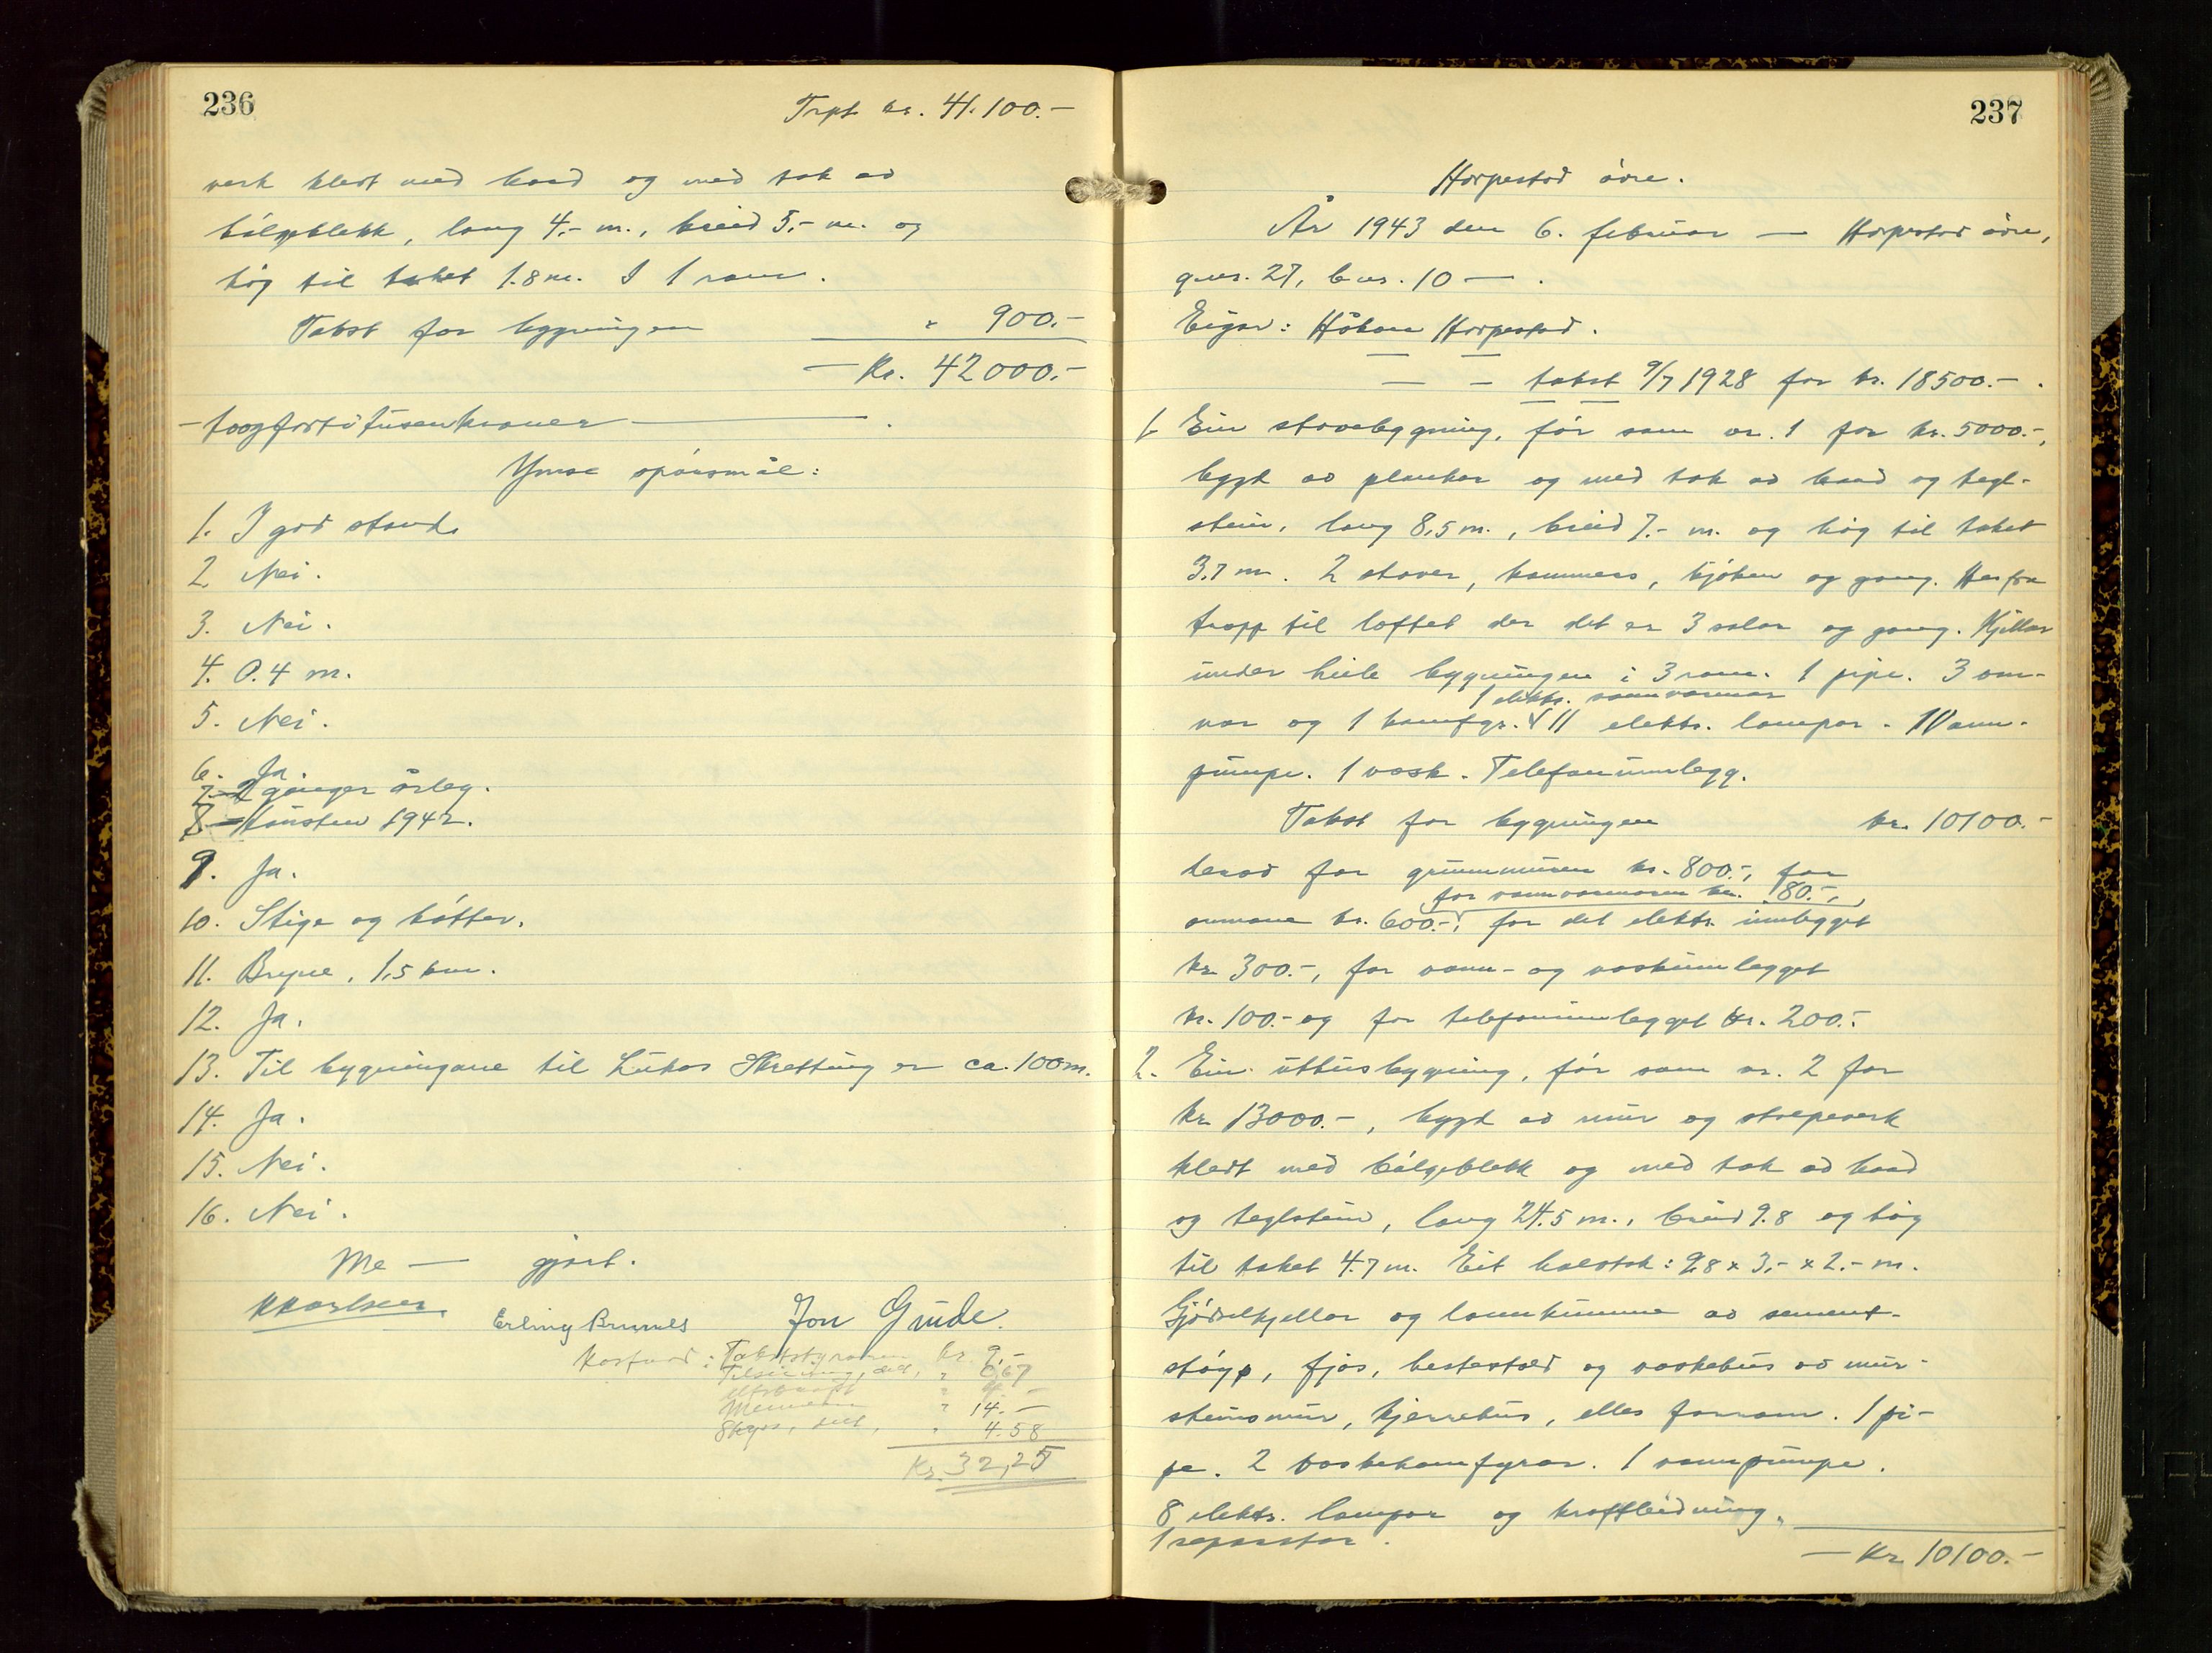 236
Trpt kr. 41.100.-
verk kledt med bord og med tak av
bølgjeblekk, lang 4,- m., breid 5,- m. og
høg til taket 1.8 m. I 1 rom.
Takst for bygningen " 900.-
- Kr. 42000.-
- toogfortitusenkroner - .
Ymse spørsmål:
1. I god stand.
2. Nei.
3. Nei.
4. 0.4 m.
5. Nei.
6. Ja.
7. 2 gonger årleg.
8. Hausten 1942.
9. Ja.
10. Stige og bøtter.
11. Bryne, 1,5 km.
12. Ja.
13. Til bygningane til Lukas Skretting er ca. 100 m.
14. Ja.
15. Nei.
16. Nei.
Me — gjort.
Erling Brunes Jon Grude.
Kostnad: Takststyraren kr. 9,-
Tilseiing, delt, " 0,67
Utskrift " 4.-
Mennene " 14.-
Skyss, delt, " 4.58
Kr. 32,25
237
Horpestad øvre.
År 1943 den 6. februar — Horpestad øvre,
gnr. 27, bnr. 10 — .
Eigar: Håkon Horpestad.
— — takst 9/7 1928 for kr. 18500.- .
1. Ein stovebygning, før som nr. 1 for kr. 5000.-,
bygd av plankar og med tak av bord og tegl-
stein, lang 8,5 m., breid 7.- m. og høg til taket
3.7 m. 2 stover, kammers, kjøken og gang. Herfra
tropp til loftet der det er 3 salar og gang. Kjellar
under heile bygningen i 3 rom. 1 pipe. 3 om-
1 elektr. vannvarmar
nar og 1 komfyr. 11 elektr. lampor. 1 Vann-
pumpe. 1 vask. Telefoninnlegg.
Takst for bygningen kr. 10100.-
herav for grunnmuren kr. 800.-, for
for vannvarmaren kr. 180.-,
omnane kr. 600.-, for det elektr. innlegget
kr. 300.-, for vann- og vaskinnlegget
kr. 100.- og for telefoninnlegget kr. 200.-.
2. Ein uthusbygning, før som nr. 2 for
kr. 13000.-, bygd av mur og stolpeverk
kledt med bølgjeblekk og med tak av bord
og teglstein, lang 24.5 m., breid 9.8 og høg
til taket 4.7 m. Eit halvtak: 9,8 x 3,- x 2.- m.
Gjødselkjellar og lannkumme av sement-
støyp, fjos, hestestald og vaskehus av mur-
steinsmur, kjerrehus, elles forrom. 1 pi-
pe. 2 vaskekomfyrar. 1 vannpumpe.
8 elektr. lampor og kraftleidning.
1 separator.
- Kr. 10100.-